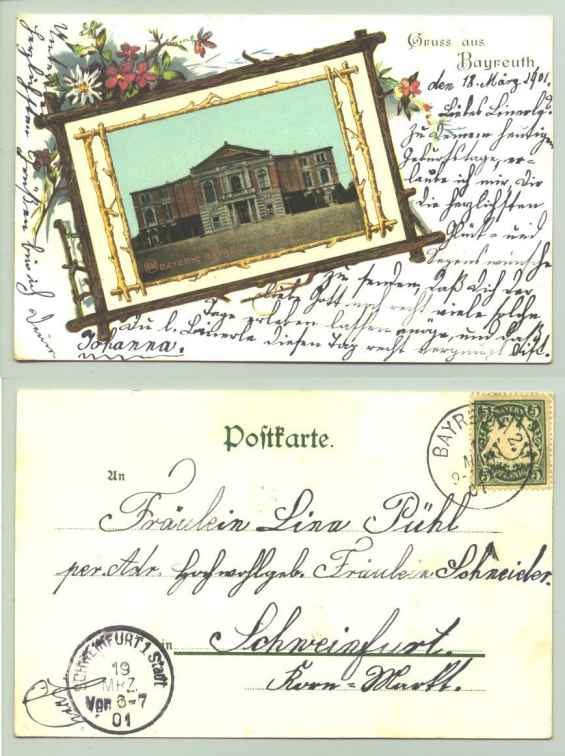 Gruss aus
Bayreuth,
den 18. März 1901.
Liebes Linerl!
Zu Deinem heutigen
Geburtstage, er-
laube ich mir, Dir
die herzlichsten
Glück- und
Segenswünsche
zu senden, daß Dich der
liebe Gott noch recht viele solche
Tage erleben lassen möge, und daß
Du l. Linerle diesen Tag recht vergnügt
Unter
herzlichen Grüßen bin ich
Deine
Johanna.
Postkarte.
An
Fräulein Lina Pühl
per. Adr. Hochwohlgeb. Fräulein Schneider.
in Schweinfurt.
Korn-Markt.
BAYERN
5 5
PFENNIG
BAYR
01
SCHWEINFURT 1 Stadt
19
MRZ
Vor 6-7
01